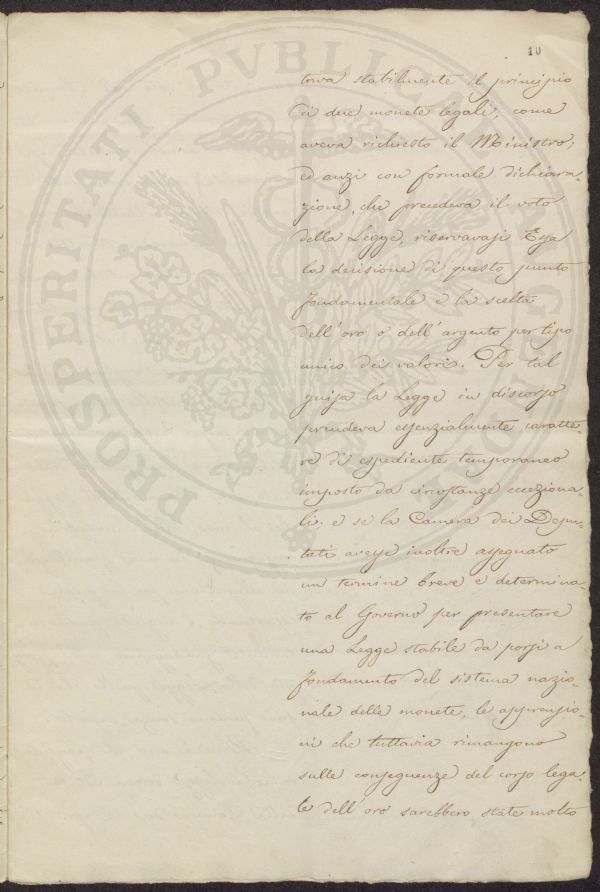 10
PROSPERITATI PVBLICAE
tova stabilmente il principio
di due monete legali, come
aveva richiesto il Ministro;
ed anzi con formale dichiara-
zione, che precedeva il voto
della Legge, riservavasi Essa
la decisione di questo punto
fondamentale e la scelta
dell'oro o dell'argento per tipo
unico dei valori. Per tal
guisa la Legge in discorso
prendeva essenzialmente caratte-
re di espediente temporaneo
imposto da circostanze ecceziona-
li; e se la Camera dei Depu-
tati avesse inoltre assegnato
un termine breve e determina-
to al Governo per presentare
una Legge stabile da porsi a
fondamento del sistema nazio-
nale delle monete, le apprensio-
ni che tuttavia rimangono
sulle conseguenze del corso lega-
le dell'oro sarebbero state molto